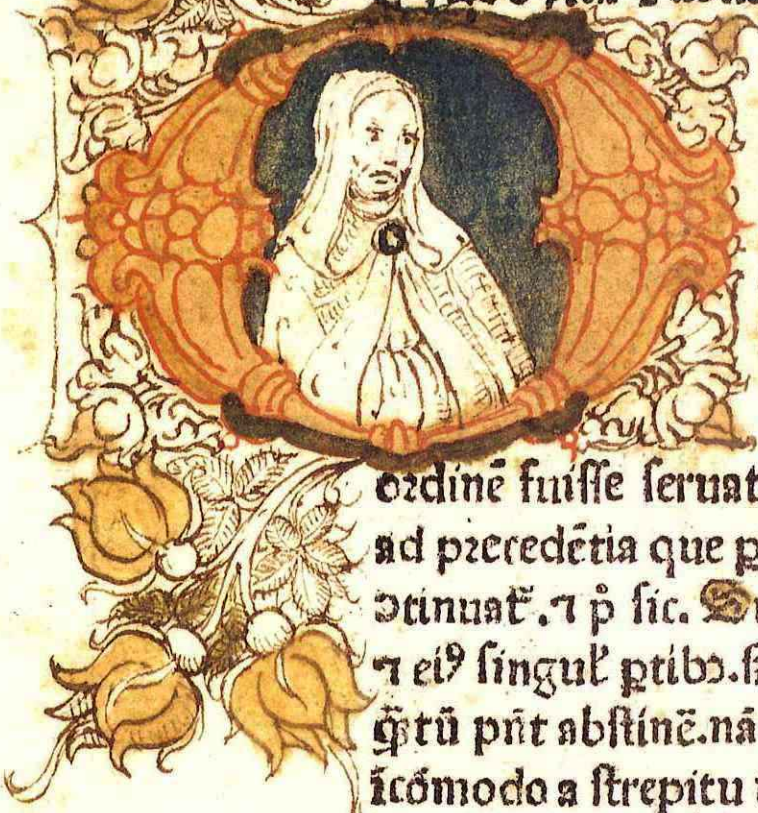 ordinē fuisse seruat
ad precedētia que p
ↄtinuat̉. ⁊ pͦ sic. 
⁊ ei⁹ singul̉ ꝑtibꝫ.
q̄tū pn̄t abstinē. nā
ĩcōmodo a strepitu